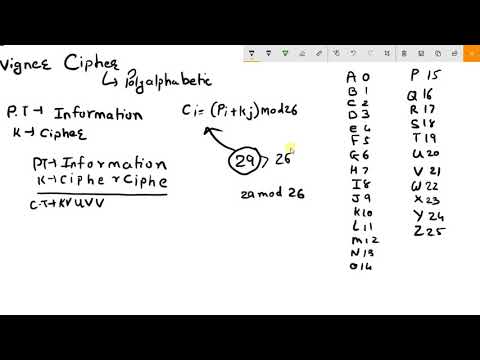 Vigneε Cipher
↳ Polyalphabetic
P.T → Information
K → Cipher
Ci = (Pi + kj) mod 26
29 > 26
29 mod 26
PT → Information
K → Cipher Ciphe
C.T → K V U V V
A 0
B 1
C 2
D 3
E 4
F 5
G 6
H 7
I 8
J 9
K 10
L 11
M 12
N 13
O 14
P 15
Q 16
R 17
S 18
T 19
U 20
V 21
W 22
X 23
Y 24
Z 25